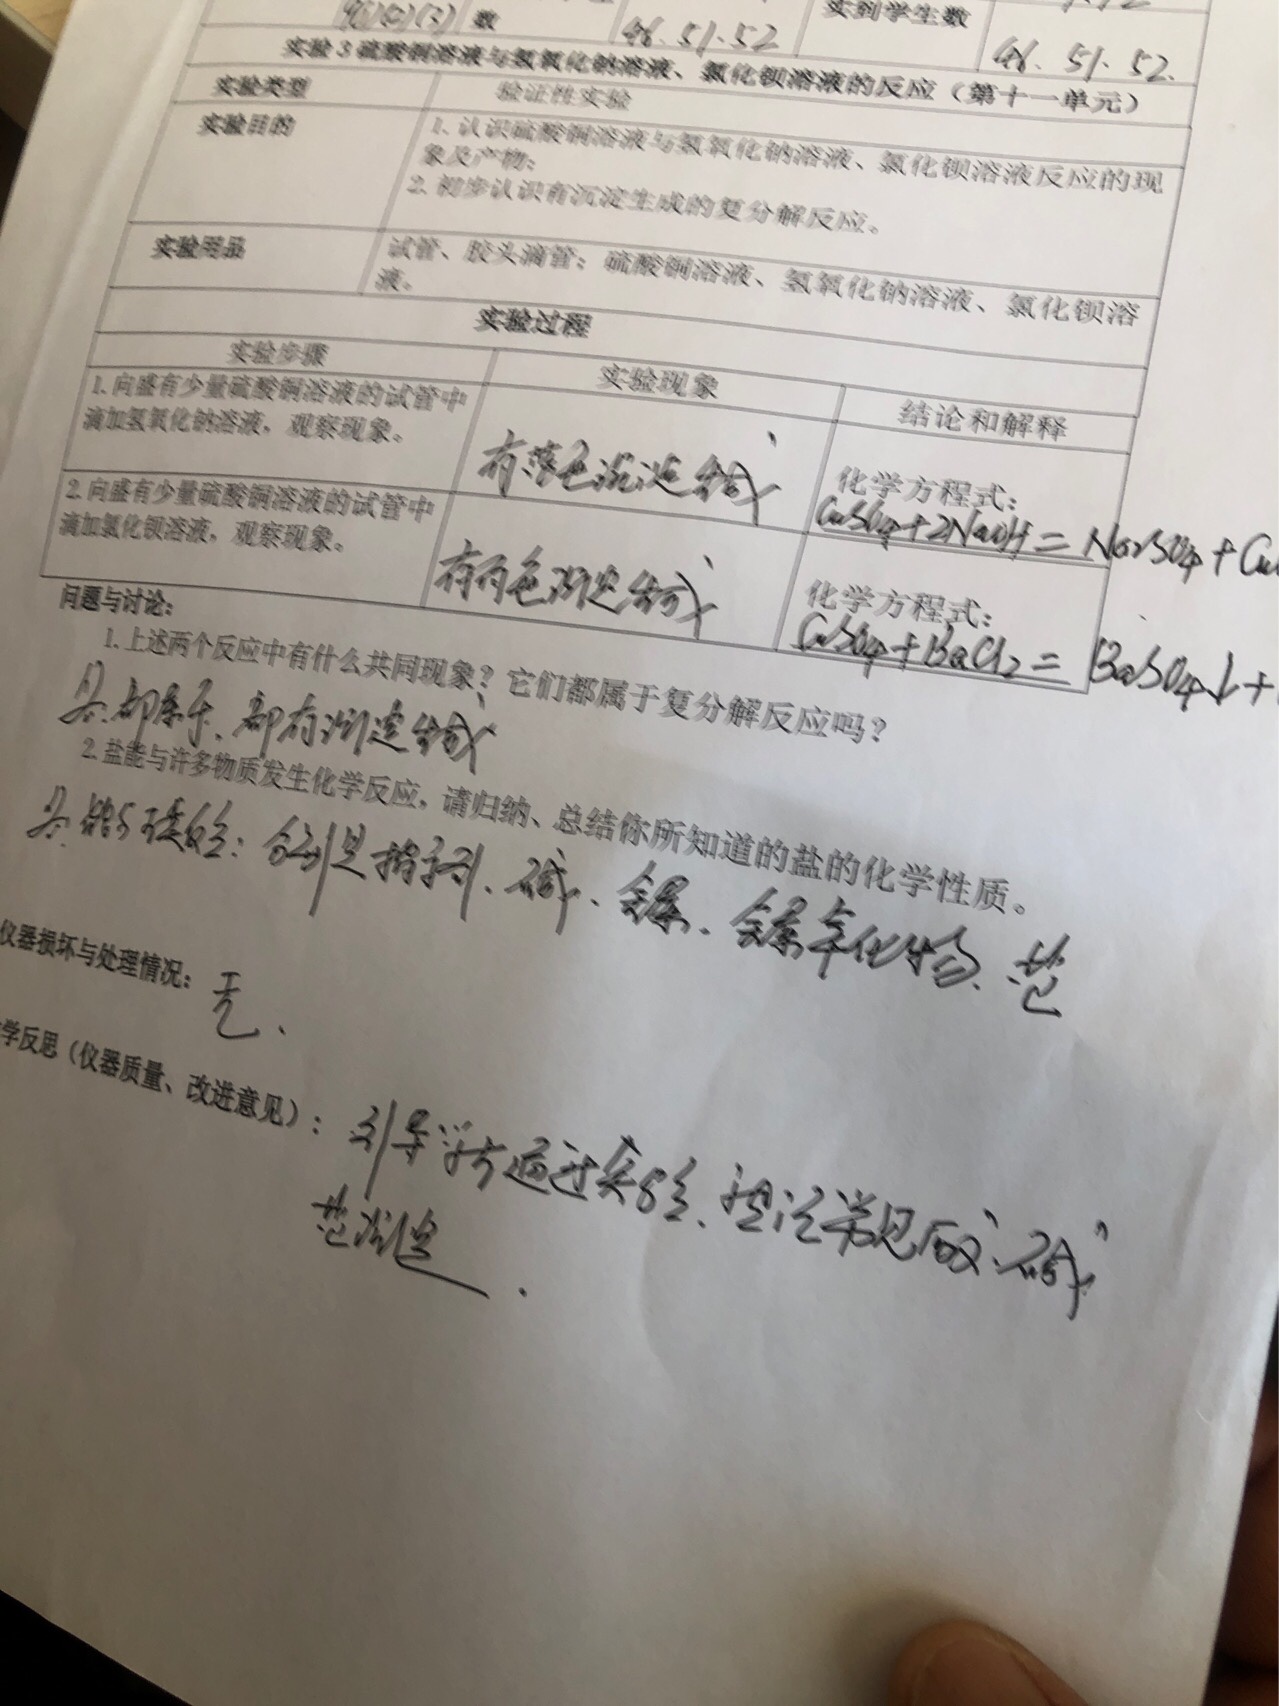 数
46.51.52
实到学生数
46. 51. 52.
实验 3 硫酸铜溶液与氢氧化钠溶液、氯化钡溶液的反应（第十一单元）
实验类型
验证性实验
实验目的
1. 认识硫酸铜溶液与氢氧化钠溶液、氯化钡溶液反应的现
象及产物；
2. 初步认识有沉淀生成的复分解反应。
实验用品
试管、胶头滴管；硫酸铜溶液、氢氧化钠溶液、氯化钡溶
液。
实验过程
实验步骤
实验现象
结论和解释
1. 向盛有少量硫酸铜溶液的试管中
滴加氢氧化钠溶液，观察现象。
有蓝色沉淀生成
化学方程式：
CuSO4+2NaOH = Na2SO4+Cu
2. 向盛有少量硫酸铜溶液的试管中
滴加氯化钡溶液，观察现象。
有白色沉淀生成
化学方程式：
CuSO4+BaCl2 = BaSO4↓+
问题与讨论：
1. 上述两个反应中有什么共同现象？它们都属于复分解反应吗？
都属于、都有沉淀生成
2. 盐能与许多物质发生化学反应，请归纳、总结你所知道的盐的化学性质。
分别是指示剂、碱、金属、金属氧化物、盐
仪器损坏与处理情况：无.
学反思（仪器质量、改进意见）：引导学生通过实验、常见的、碱
盐沉淀.